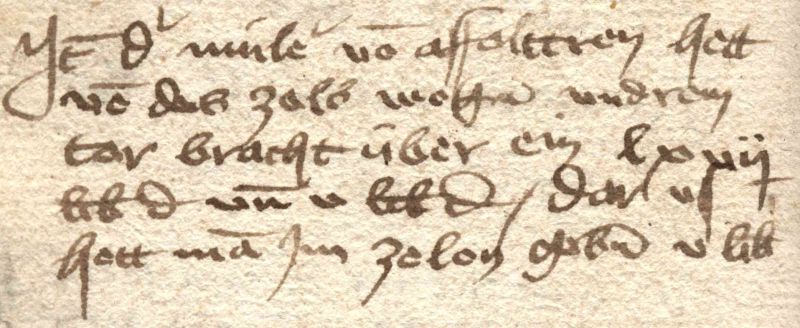 Jt d' müle vō affolttren hett
vō des zols wegē vndrem
tor bracht über ein lxxij
lib d vn̄ v lib d / dar vs
hett mā Jm zelon gebn̄ v lib